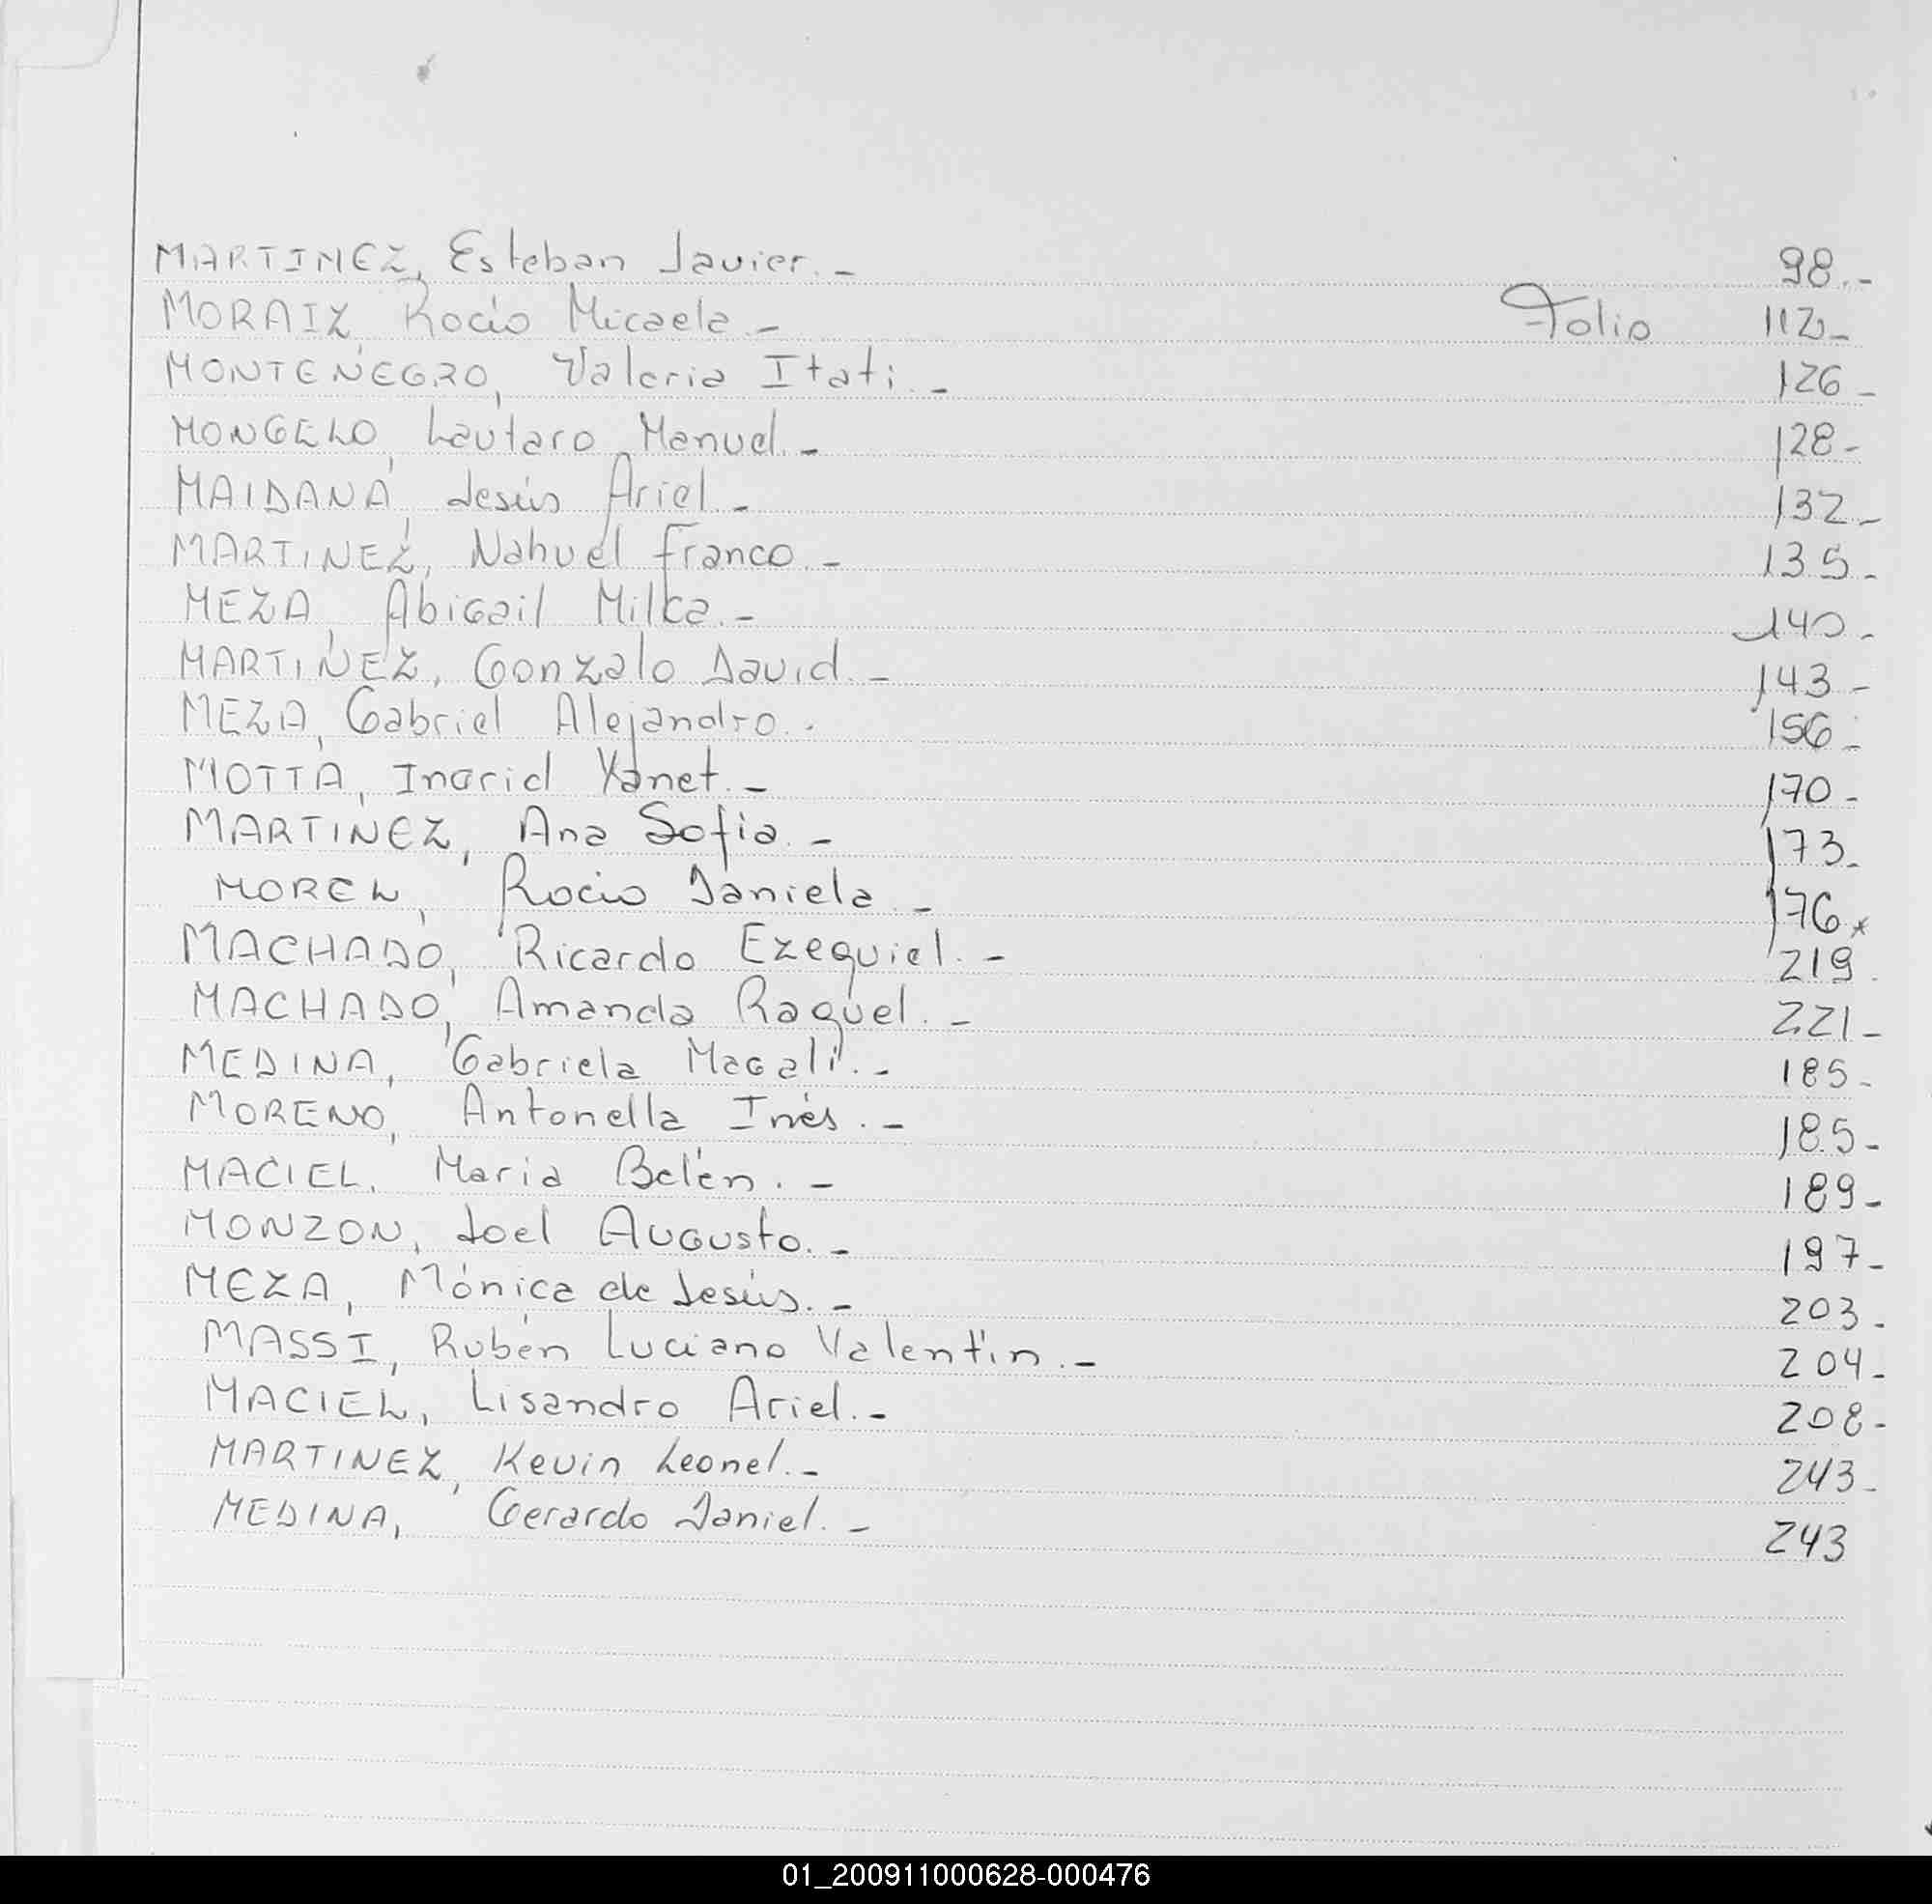 MARTINEZ, Esteban Javier.- 98.-
MORAIZ, Rocío Micaela.- Folio 112-
MONTENEGRO, Valeria Itati.- 126-
MONGELO, Lautaro Manuel.- 128-
MAIDANA, Jesús Ariel.- 132-
MARTINEZ, Nahuel Franco.- 135-
MEZA, Abigail Milka.- 140-
MARTINEZ, Gonzalo David.- 143-
MEZA, Gabriel Alejandro.- 156-
MOTTA, Ingrid Yanet.- 170-
MARTINEZ, Ana Sofia.- 173-
MOREL, Rocío Daniela.- 176*
MACHADO, Ricardo Ezequiel.- 219.
MACHADO, Amanda Raquel.- 221-
MEDINA, Gabriela Magalí.- 185-
MORENO, Antonella Inés.- 185-
MACIEL, Maria Belén.- 189-
MONZON, Joel Augusto.- 197-
MEZA, Mónica de Jesús.- 203.
MASSI, Rubén Luciano Valentín.- 204-
MACIEL, Lisandro Ariel.- 208-
MARTINEZ, Kevin Leonel.- 243-
MEDINA, Gerardo Daniel.- 243
01_200911000628-000476